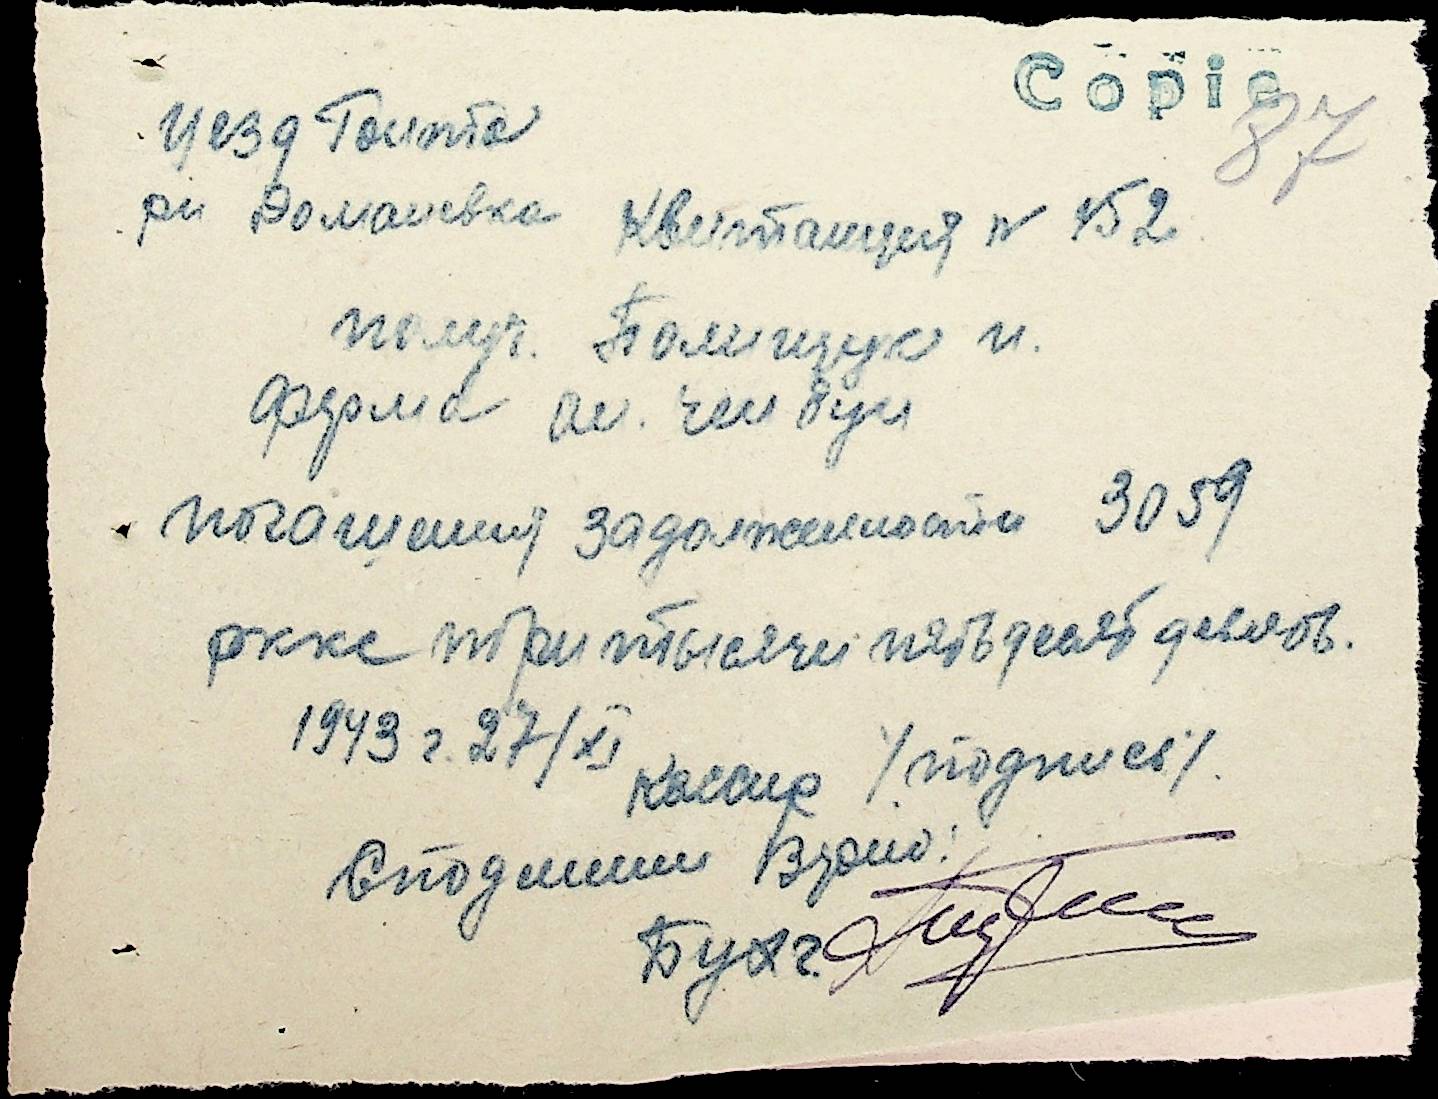 Copie
87
Уезд Голта
рн Домашевка Квитанция N 152
получ. Полищук и.
Ферма
погашения задолженности 3059
ркке три тысячи пятьдесят девять.
1943 г. 27/XI
Кассир /подпись/.
С подлинным Верно:
Бухг.